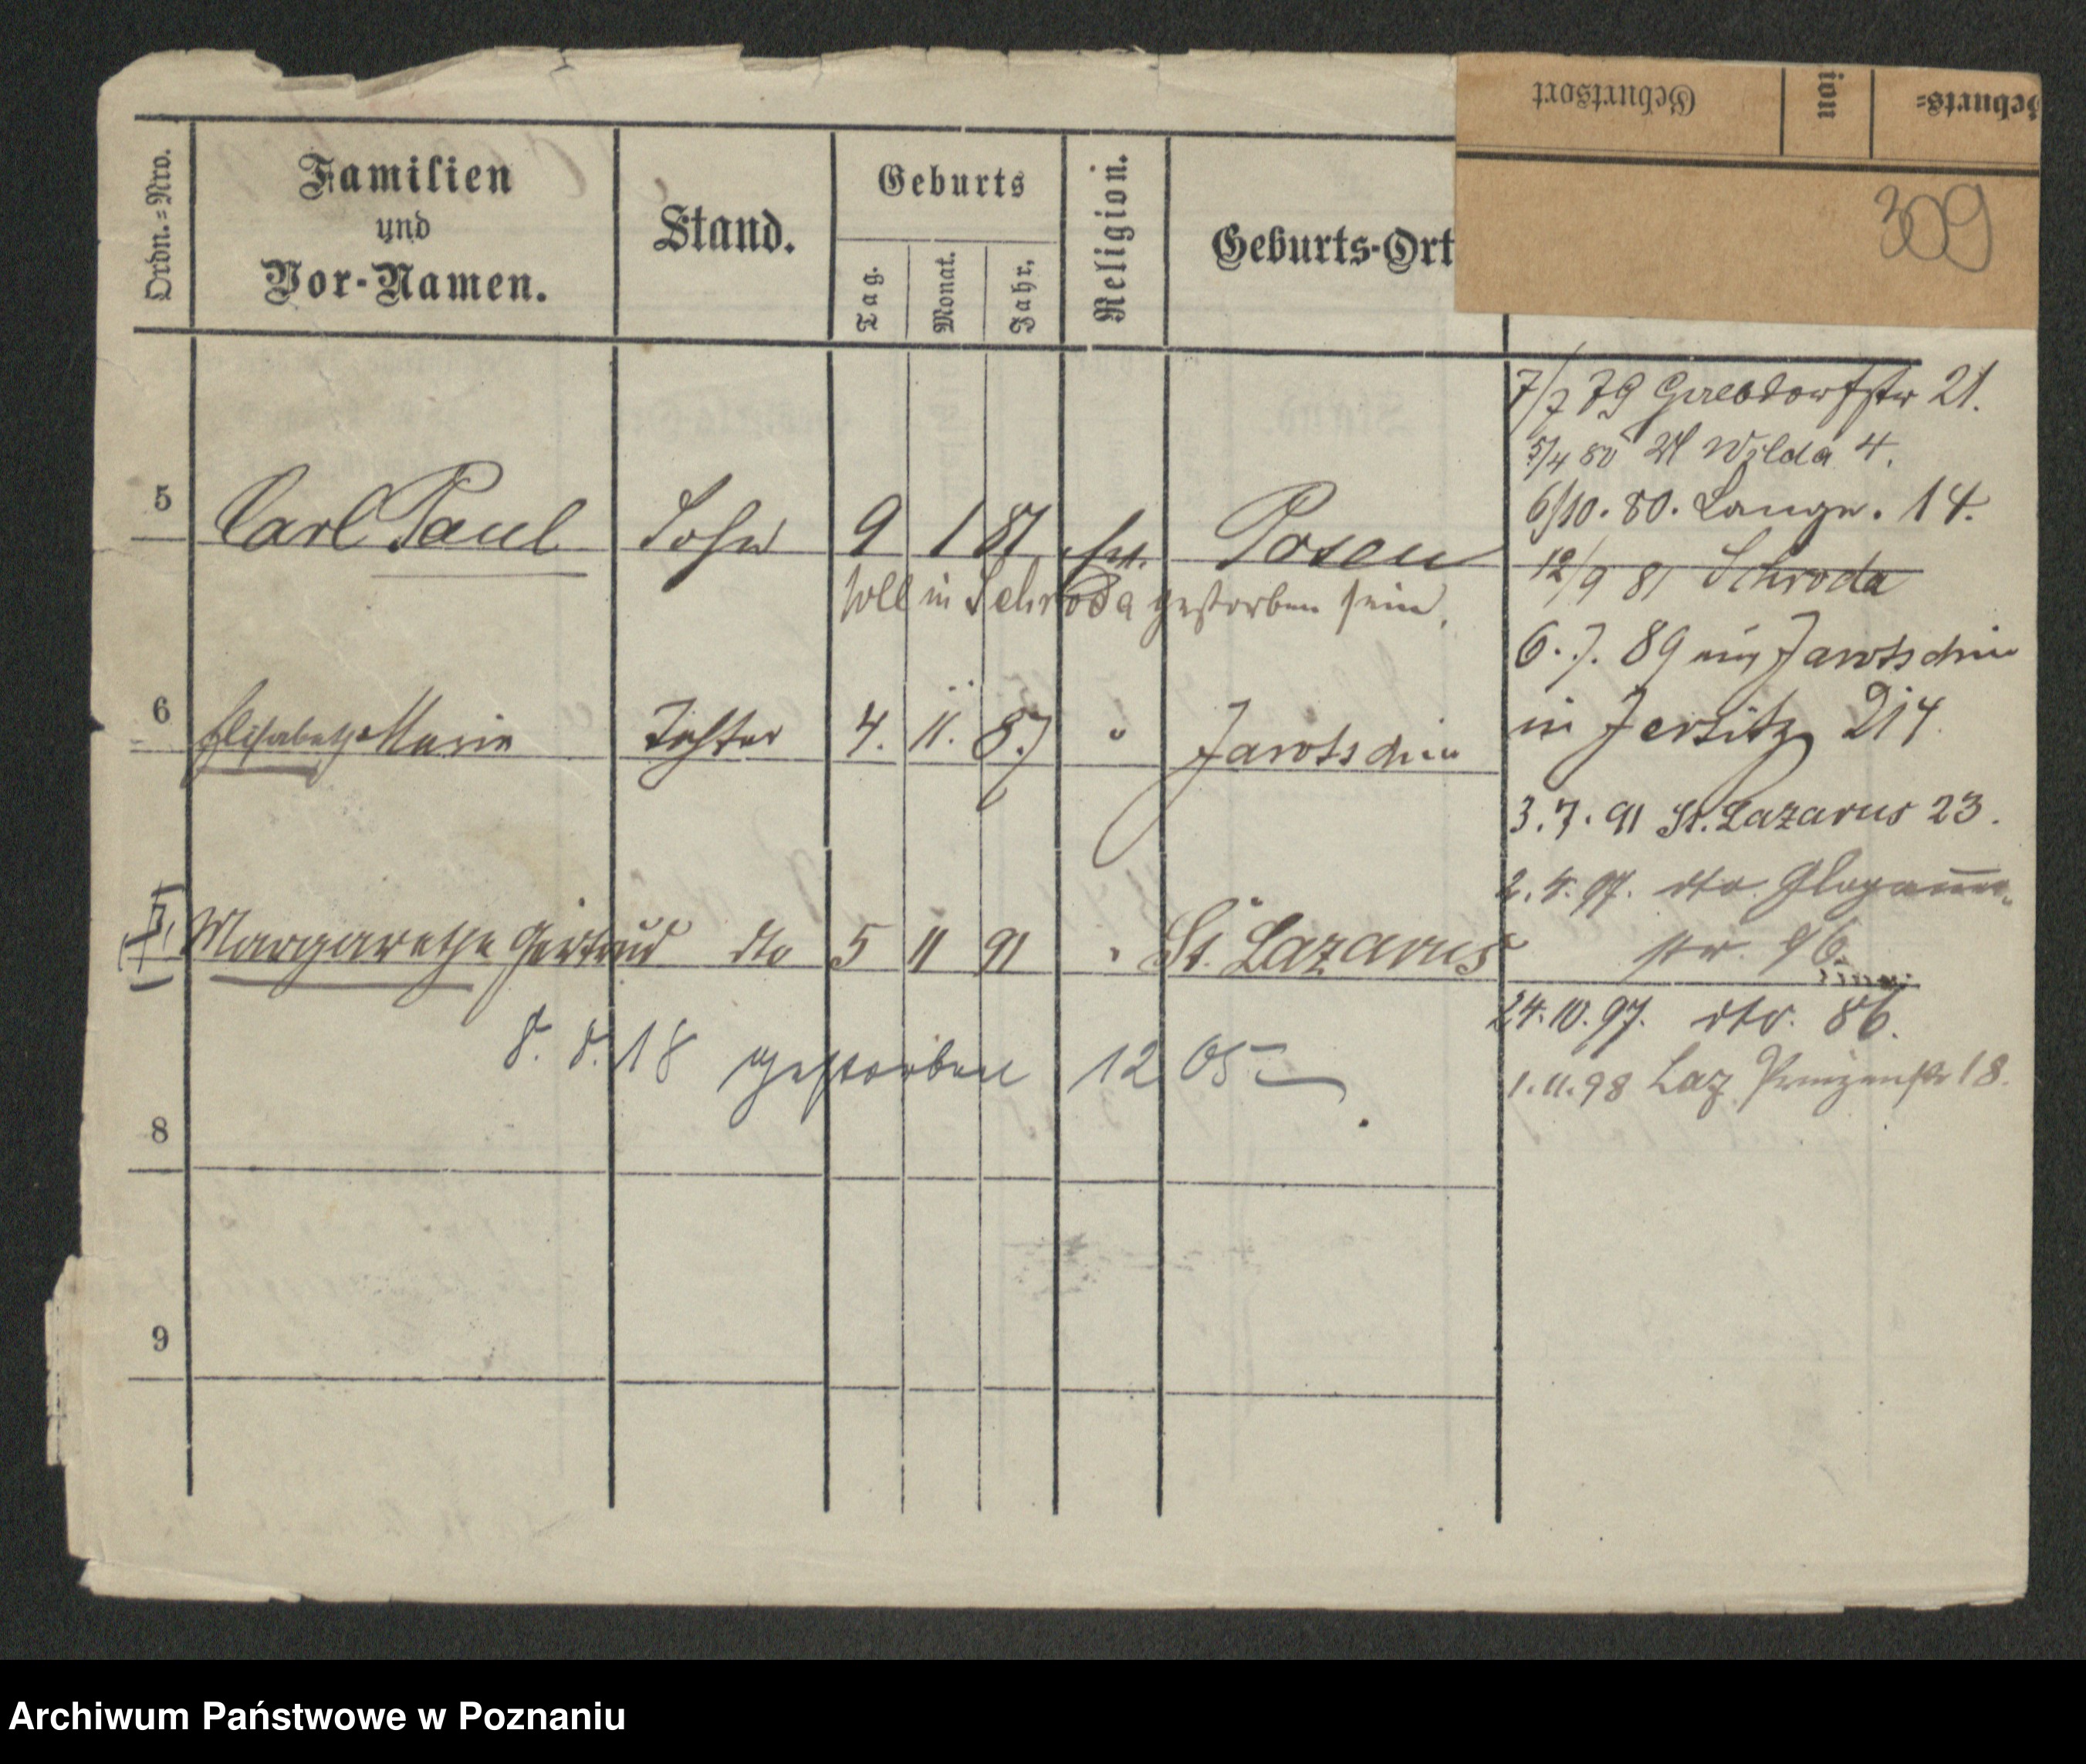 Geburtsort
ion
Geburts-
309
Ordn.=Nro.
Familien
und
Vor-Namen.
Stand.
Geburts
Tag.
Monat.
Jahr.
Religion.
Geburts-Ort
7/7 79 21.
5/4 80 Wilda 4.
5 Carl Paul Sohn 9 1 81 Posen
6/10. 80. Lange. 14.
12/9 81 Schroda
soll in Schroda gestorben sein.
6. 7. 89 aus Jarotschin
in Jersitz 214.
6 Elisabeth Marie Tochter 4. 11. 87 " Jarotschin
3. 7. 91 St. Lazarus 23.
2. 4. 97. dto. Glogauer-
str. 96.
7 Margarethe Gertrud dto 5 11 91 " St. Lazarus
24. 10. 97. dto. 86.
8. 8. 18 gestorben 12 05
1. 11. 98 Laz. Prinzenstr 18.
8
9
Archiwum Państwowe w Poznaniu